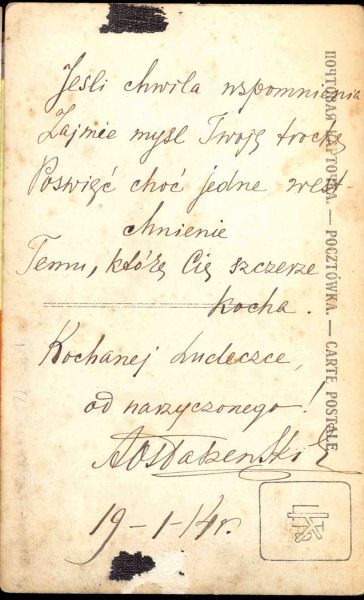 Jeśli chwila wspomnienia
Zajmie myśl Twoję trochę
Poświęć choć jedne west
chnienie
Temu, któży Cię szczerze
kocha.
Kochanej Ludeczce,
od narzyczonego!
19-1-14r.
ПОЧТОВАЯ КАРТОЧКА. — POCZTÓWKA. — CARTE POSTALE